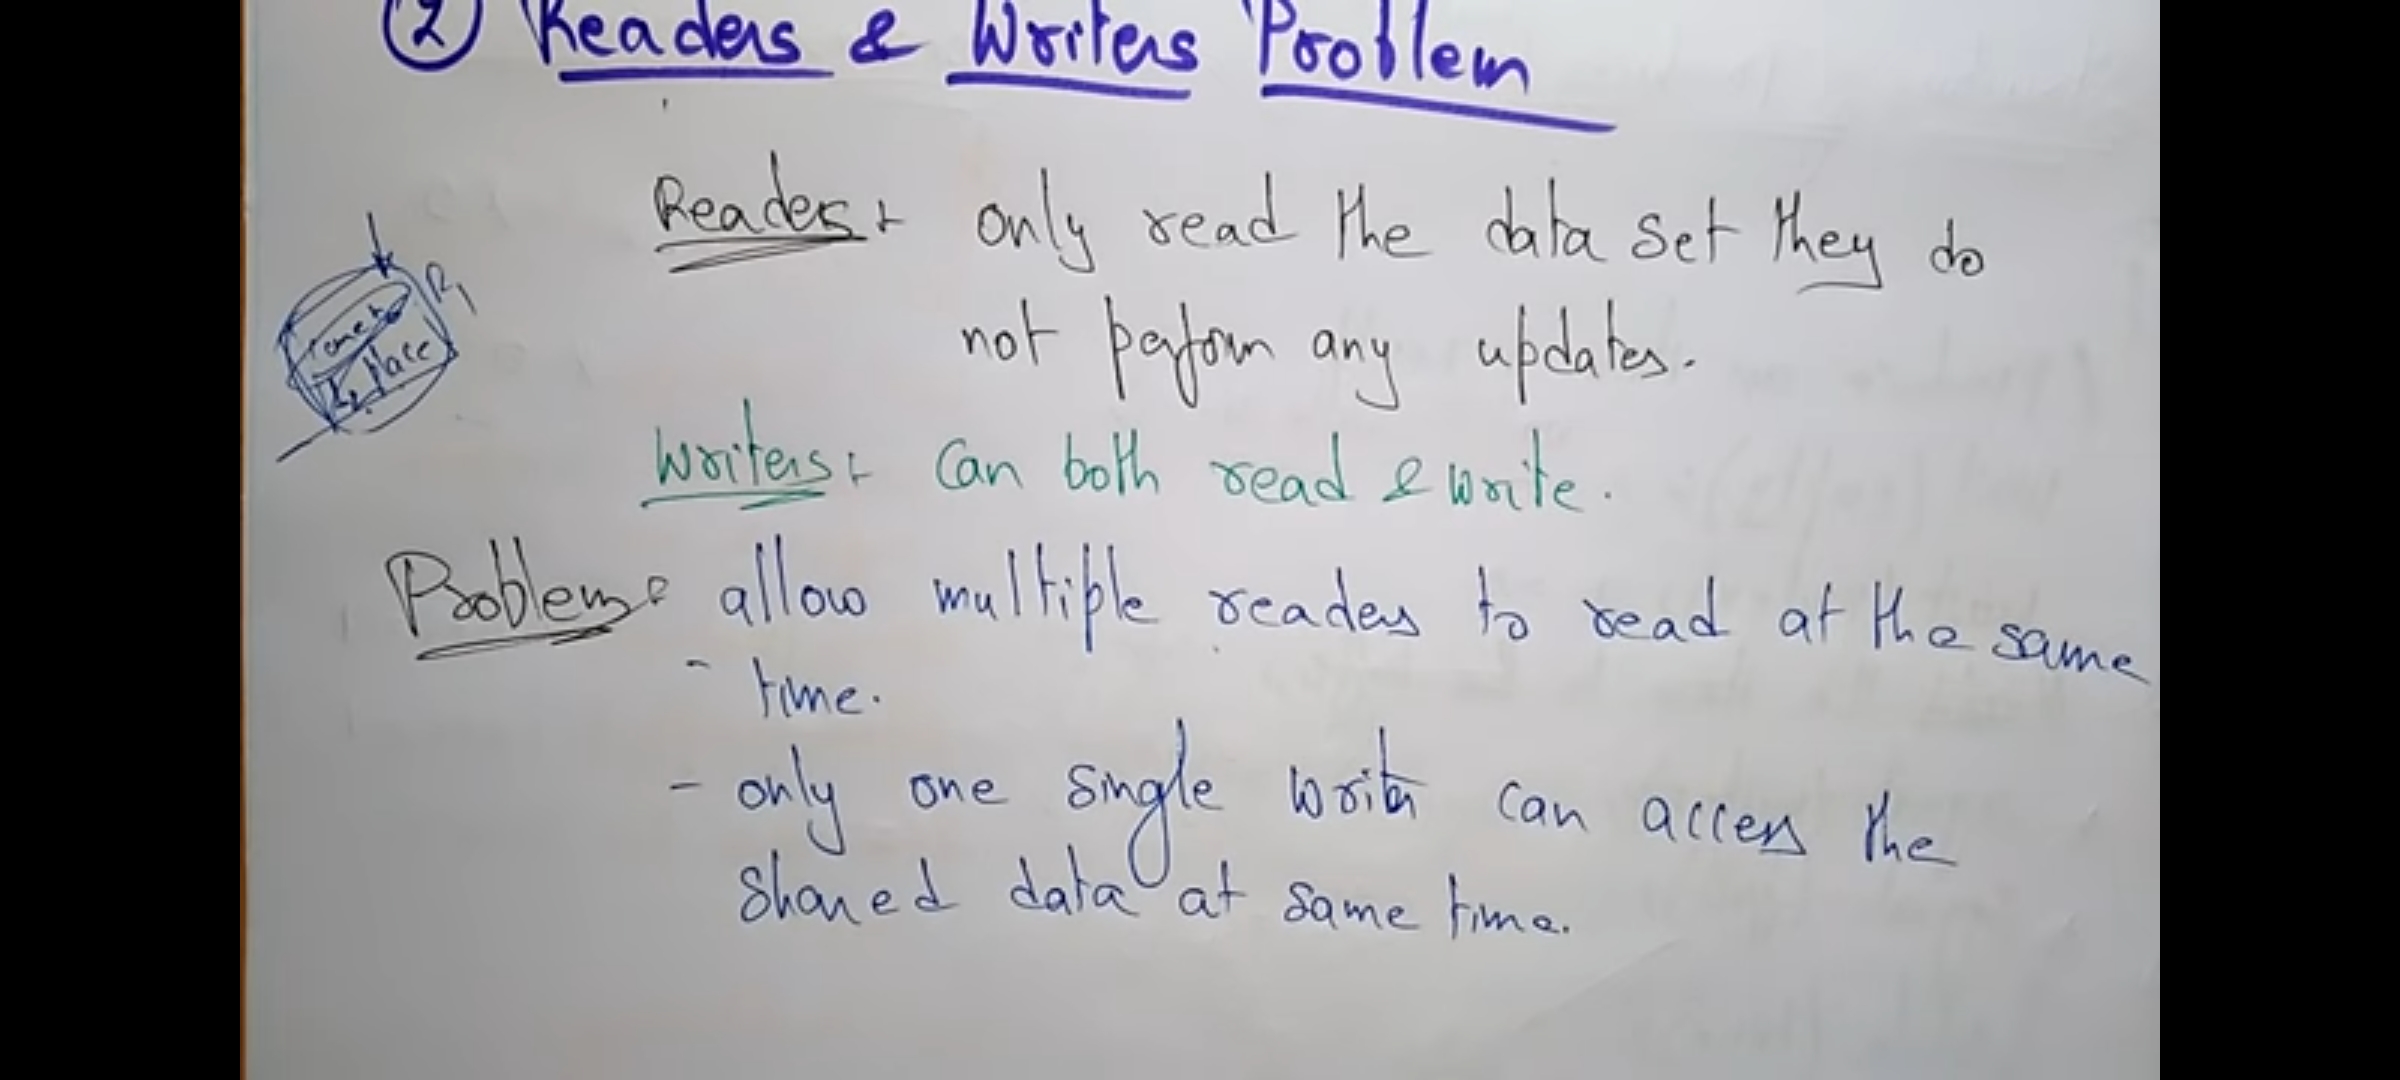 ② Readers & Writers Problem
Readers: only read the data set they do
not perform any updates.
R1
place
Writers: Can both read & write.
Problem: allow multiple readers to read at the same
- time.
- only one single writer can access the
shared data at same time.